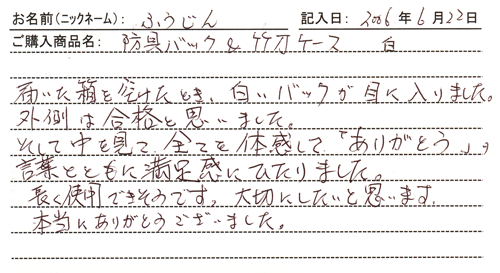 お名前(ニックネーム): ふうじん 記入日: 2006年6月22日
ご購入商品名: 防具バック & 竹刀ケース 白
届いた箱を空けたとき、白いバックが目に入りました。
外側は合格と思いました。
そして中を見て、全てを体感して「ありがとう」の
言葉とともに満足感にひたりました。
長く使用できそうです。大切にしたいと思います。
本当にありがとうございました。